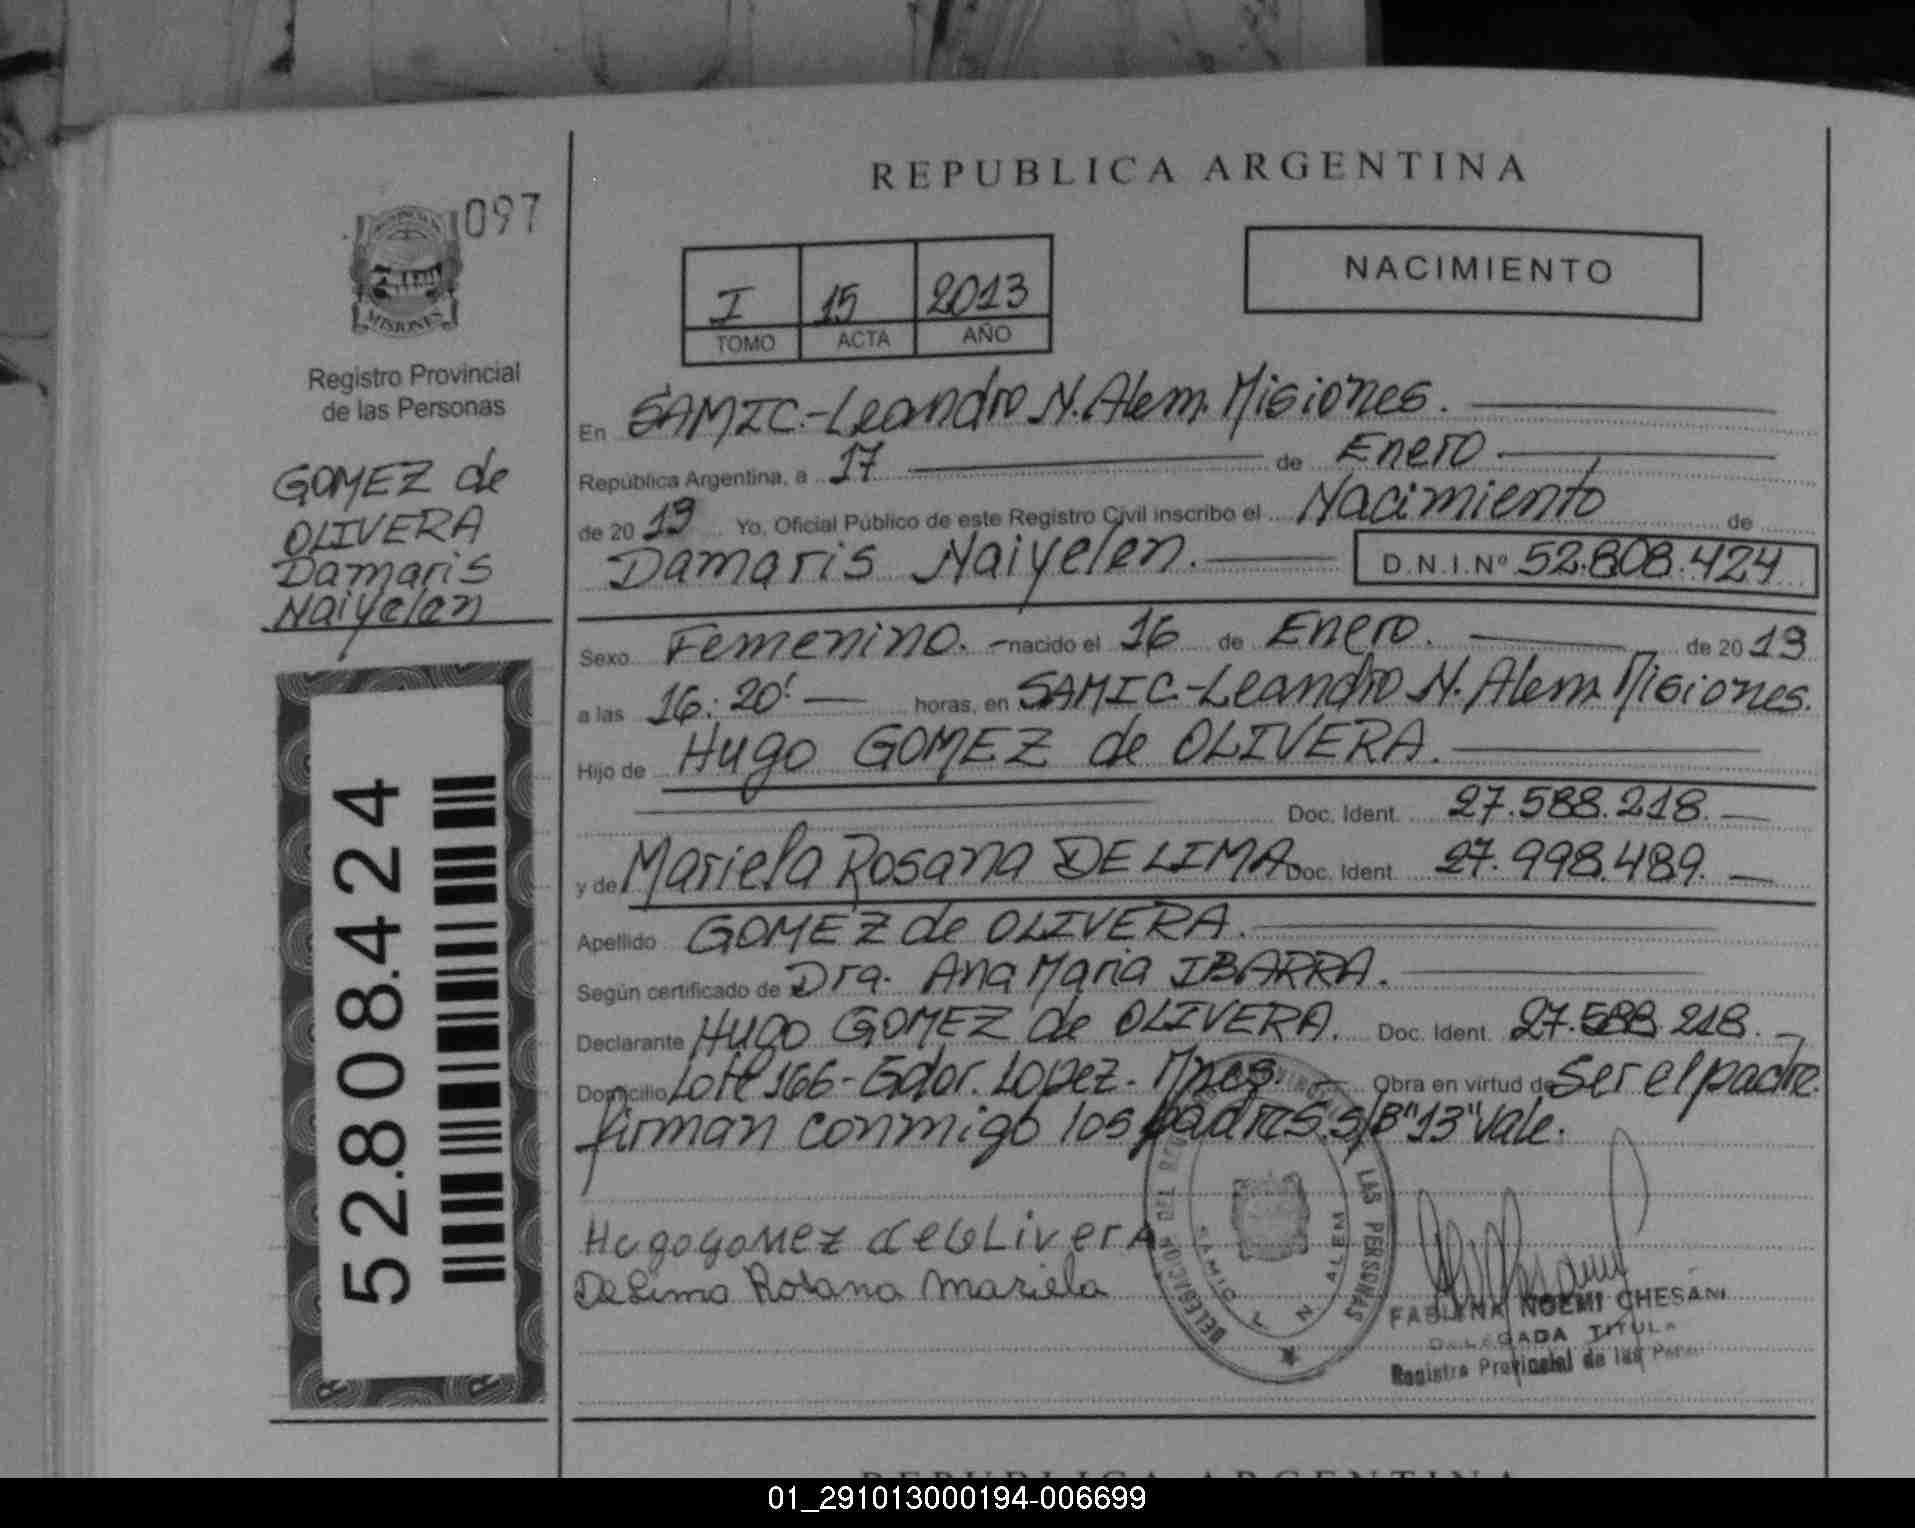 REPUBLICA ARGENTINA
097
MISIONES
Registro Provincial
de las Personas
GOMEZ de
OLIVERA
Damaris
Naiyelen
52.808.424
I 15 2013
TOMO ACTA AÑO
NACIMIENTO
En SAMIC.-Leandro N. Alem. Misiones.
República Argentina, a 17 de Enero
de 20 13 Yo, Oficial Público de este Registro Civil inscribo el Nacimiento de
Damaris Naiyelen. D.N.I.Nº 52.808.424
Sexo Femenino. - nacido el 16 de Enero. de 20 13
a las 16:20' horas, en SAMIC.-Leandro N. Alem. Misiones.
Hijo de Hugo GOMEZ de OLIVERA.
Doc. Ident. 27.588.218.
y de Mariela Rosana DE LIMA Doc. Ident. 27.998.489.
Apellido GOMEZ de OLIVERA.
Según certificado de Dra. Ana Maria IBARRA.
Declarante HUGO GOMEZ de OLIVERA. Doc. Ident. 27.588.218.
Domicilio Lote 166- Gdor. Lopez. Mnes. Obra en virtud de Ser el padre.
firman conmigo los padres. s/B "13" Vale.
Hugo gomez de oLiverA
De Lima Rosana Mariela
DELEGACION DEL LAS PERSONAS
SAMIC L N ALEM
FABIANA NOEMI CHESANI
DELEGADA TITULA
Registro Provincial de las
REPUBLICA ARGENTINA
01_291013000194-006699